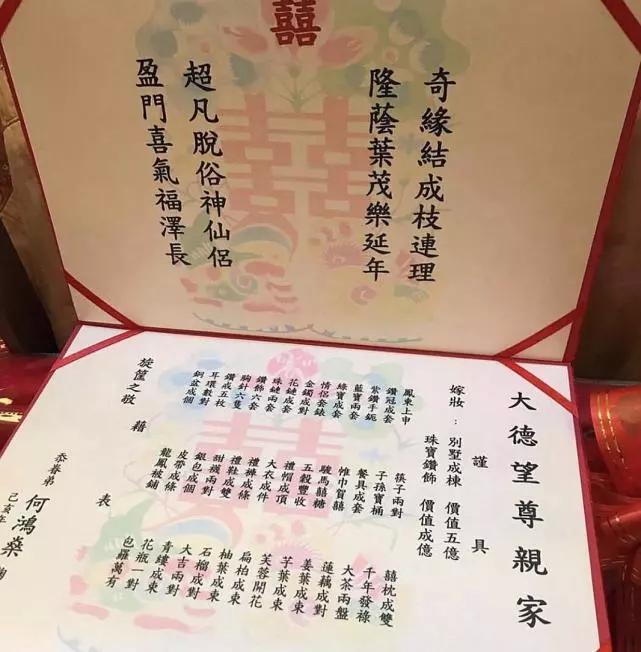 囍
奇緣結成枝連理
隆蔭葉茂樂延年
超凡脫俗神仙侶
盈門喜氣福澤長
大德望尊親家
謹具
嫁妝：別墅成棟 價值五億
珠寶鑽飾 價值成億
鳳東上申
鑽冠成套
紫鑽手鈪
藍寶兩套
綠寶成套
情侶套錶
金鐲成對
花鏈成套
珠鏈兩套
鑽飾六套
胸針六隻
鑽戒五枚
耳環數對
銅盆成個
筷子兩對
子孫寶桶
餐具成套
帷巾賀囍
駿馬囍糖
五穀豐收
禮帽成頂
大衣成件
禮褲成條
禮鞋成雙
甜襪兩對
銀包成個
皮帶成條
龍鳳被鋪
囍枕成雙
千年發祿
大茶兩盤
蓮藕成對
姜葉成束
芋葉成束
芙蓉開花
扁柏成束
柚葉成束
石榴成對
大吉兩對
青縷成束
花瓶一對
包羅萬有
旋筐之敬 藉 表
恭眷弟 何鴻燊 鞠
己亥年